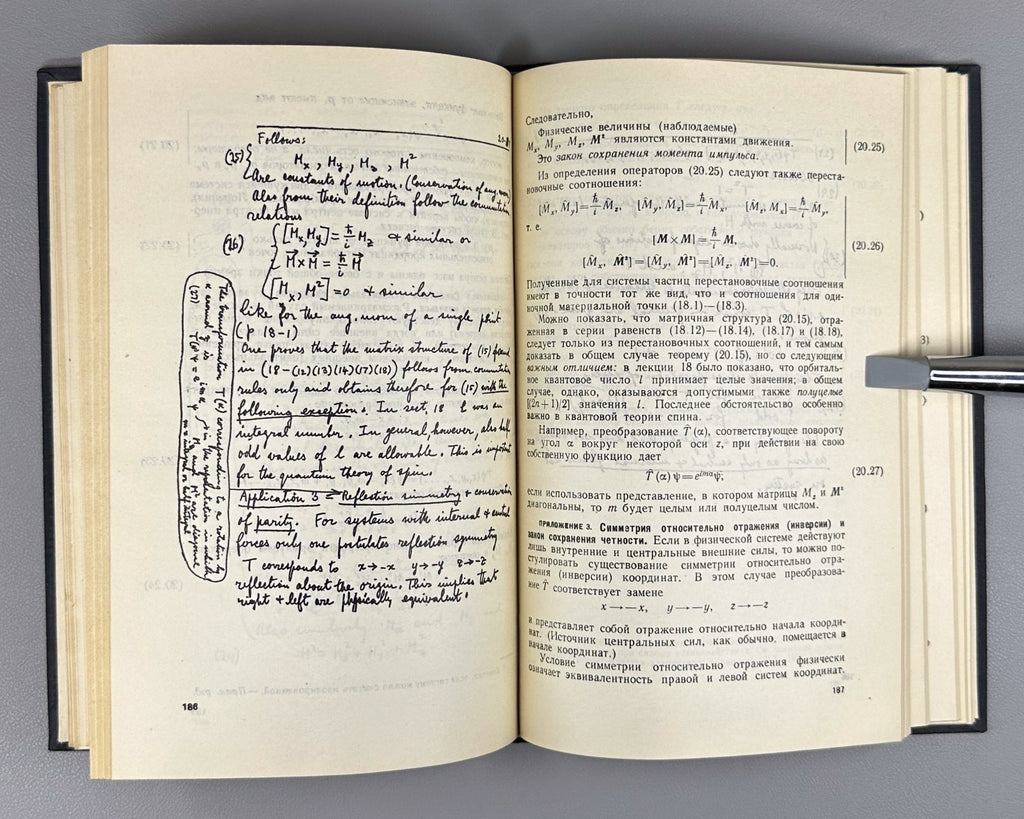 20-8
Follows:
(25) M_x, M_y, M_z, M²
Are constants of motion. (Conservation of ang. mom)
Also from their definition follow the commutation
relations
(26) [M_x, M_y] = ħ/i M_z & similar or
M⃗×M⃗ = ħ/i M⃗
[M_x, M²] = 0 & similar
like for the ang. mom of a single point
(p 18-1)
One proves that the matrix structure of (15) found
in (18-(12)(13)(14)(17)(18)) follows from commutation
rules only and obtains therefore for (15) with the
following exception. In sect. 18 l was an
integral number. In general, however, also half
odd values of l are allowable. This is important
for the quantum theory of spin.
The transformation T(α) corresponding to a rotation by
α around z is in the representation in which
(27) T(α)ψ = e^{imα} ψ M_z and M² are diagonal
m = integral or half integral
Application 3 = Reflection simmetry & conservation
of parity. For systems with internal & central
forces only one postulates reflection symmetry
T corresponds to x→-x y→-y z→-z
reflection about the origin. This implies that
right & left are physically equivalent.
186
Следовательно,
Физические величины (наблюдаемые)
M_x, M_y, M_z, M² являются константами движения.
(20.25)
Это закон сохранения момента импульса.
Из определения операторов (20.25) следуют также переста-
новочные соотношения:
[M̂_x, M̂_y]=ħ/i M̂_z, [M̂_y, M̂_z]=ħ/i M̂_x, [M̂_z, M̂_x]=ħ/i M̂_y,
т. е.
[M × M]=ħ/i M,
(20.26)
[M̂_x, M̂²]=[M̂_y, M̂²]=[M̂_z, M̂²]=0.
Полученные для системы частиц перестановочные соотношения
имеют в точности тот же вид, что и соотношения для оди-
ночной материальной точки (18.1)—(18.3).
Можно показать, что матричная структура (20.15), отра-
женная в серии равенств (18.12)—(18.14), (18.17) и (18.18),
следует только из перестановочных соотношений, и тем самым
доказать в общем случае теорему (20.15), но со следующим
важным отличием: в лекции 18 было показано, что орбиталь-
ное квантовое число l принимает целые значения; в общем
случае, однако, оказываются допустимыми также полуцелые
[(2n+1)/2] значения l. Последнее обстоятельство особенно
важно в квантовой теории спина.
Например, преобразование T̂(α), соответствующее повороту
на угол α вокруг некоторой оси z, при действии на свою
собственную функцию дает
T̂(α)ψ=e^{imα}ψ; (20.27)
если использовать представление, в котором матрицы M_z и M²
диагональны, то m будет целым или полуцелым числом.
ПРИЛОЖЕНИЕ 3. Симметрия относительно отражения (инверсии) и
закон сохранения четности. Если в физической системе действуют
лишь внутренние и центральные внешние силы, то можно по-
стулировать существование симметрии относительно отра-
жения (инверсии) координат. В этом случае преобразова-
ние T̂ соответствует замене
x → —x, y → —y, z → —z
и представляет собой отражение относительно начала коорди-
нат. (Источник центральных сил, как обычно, помещается в
начале координат.)
Условие симметрии относительно отражения физически
означает эквивалентность правой и левой систем координат.
187